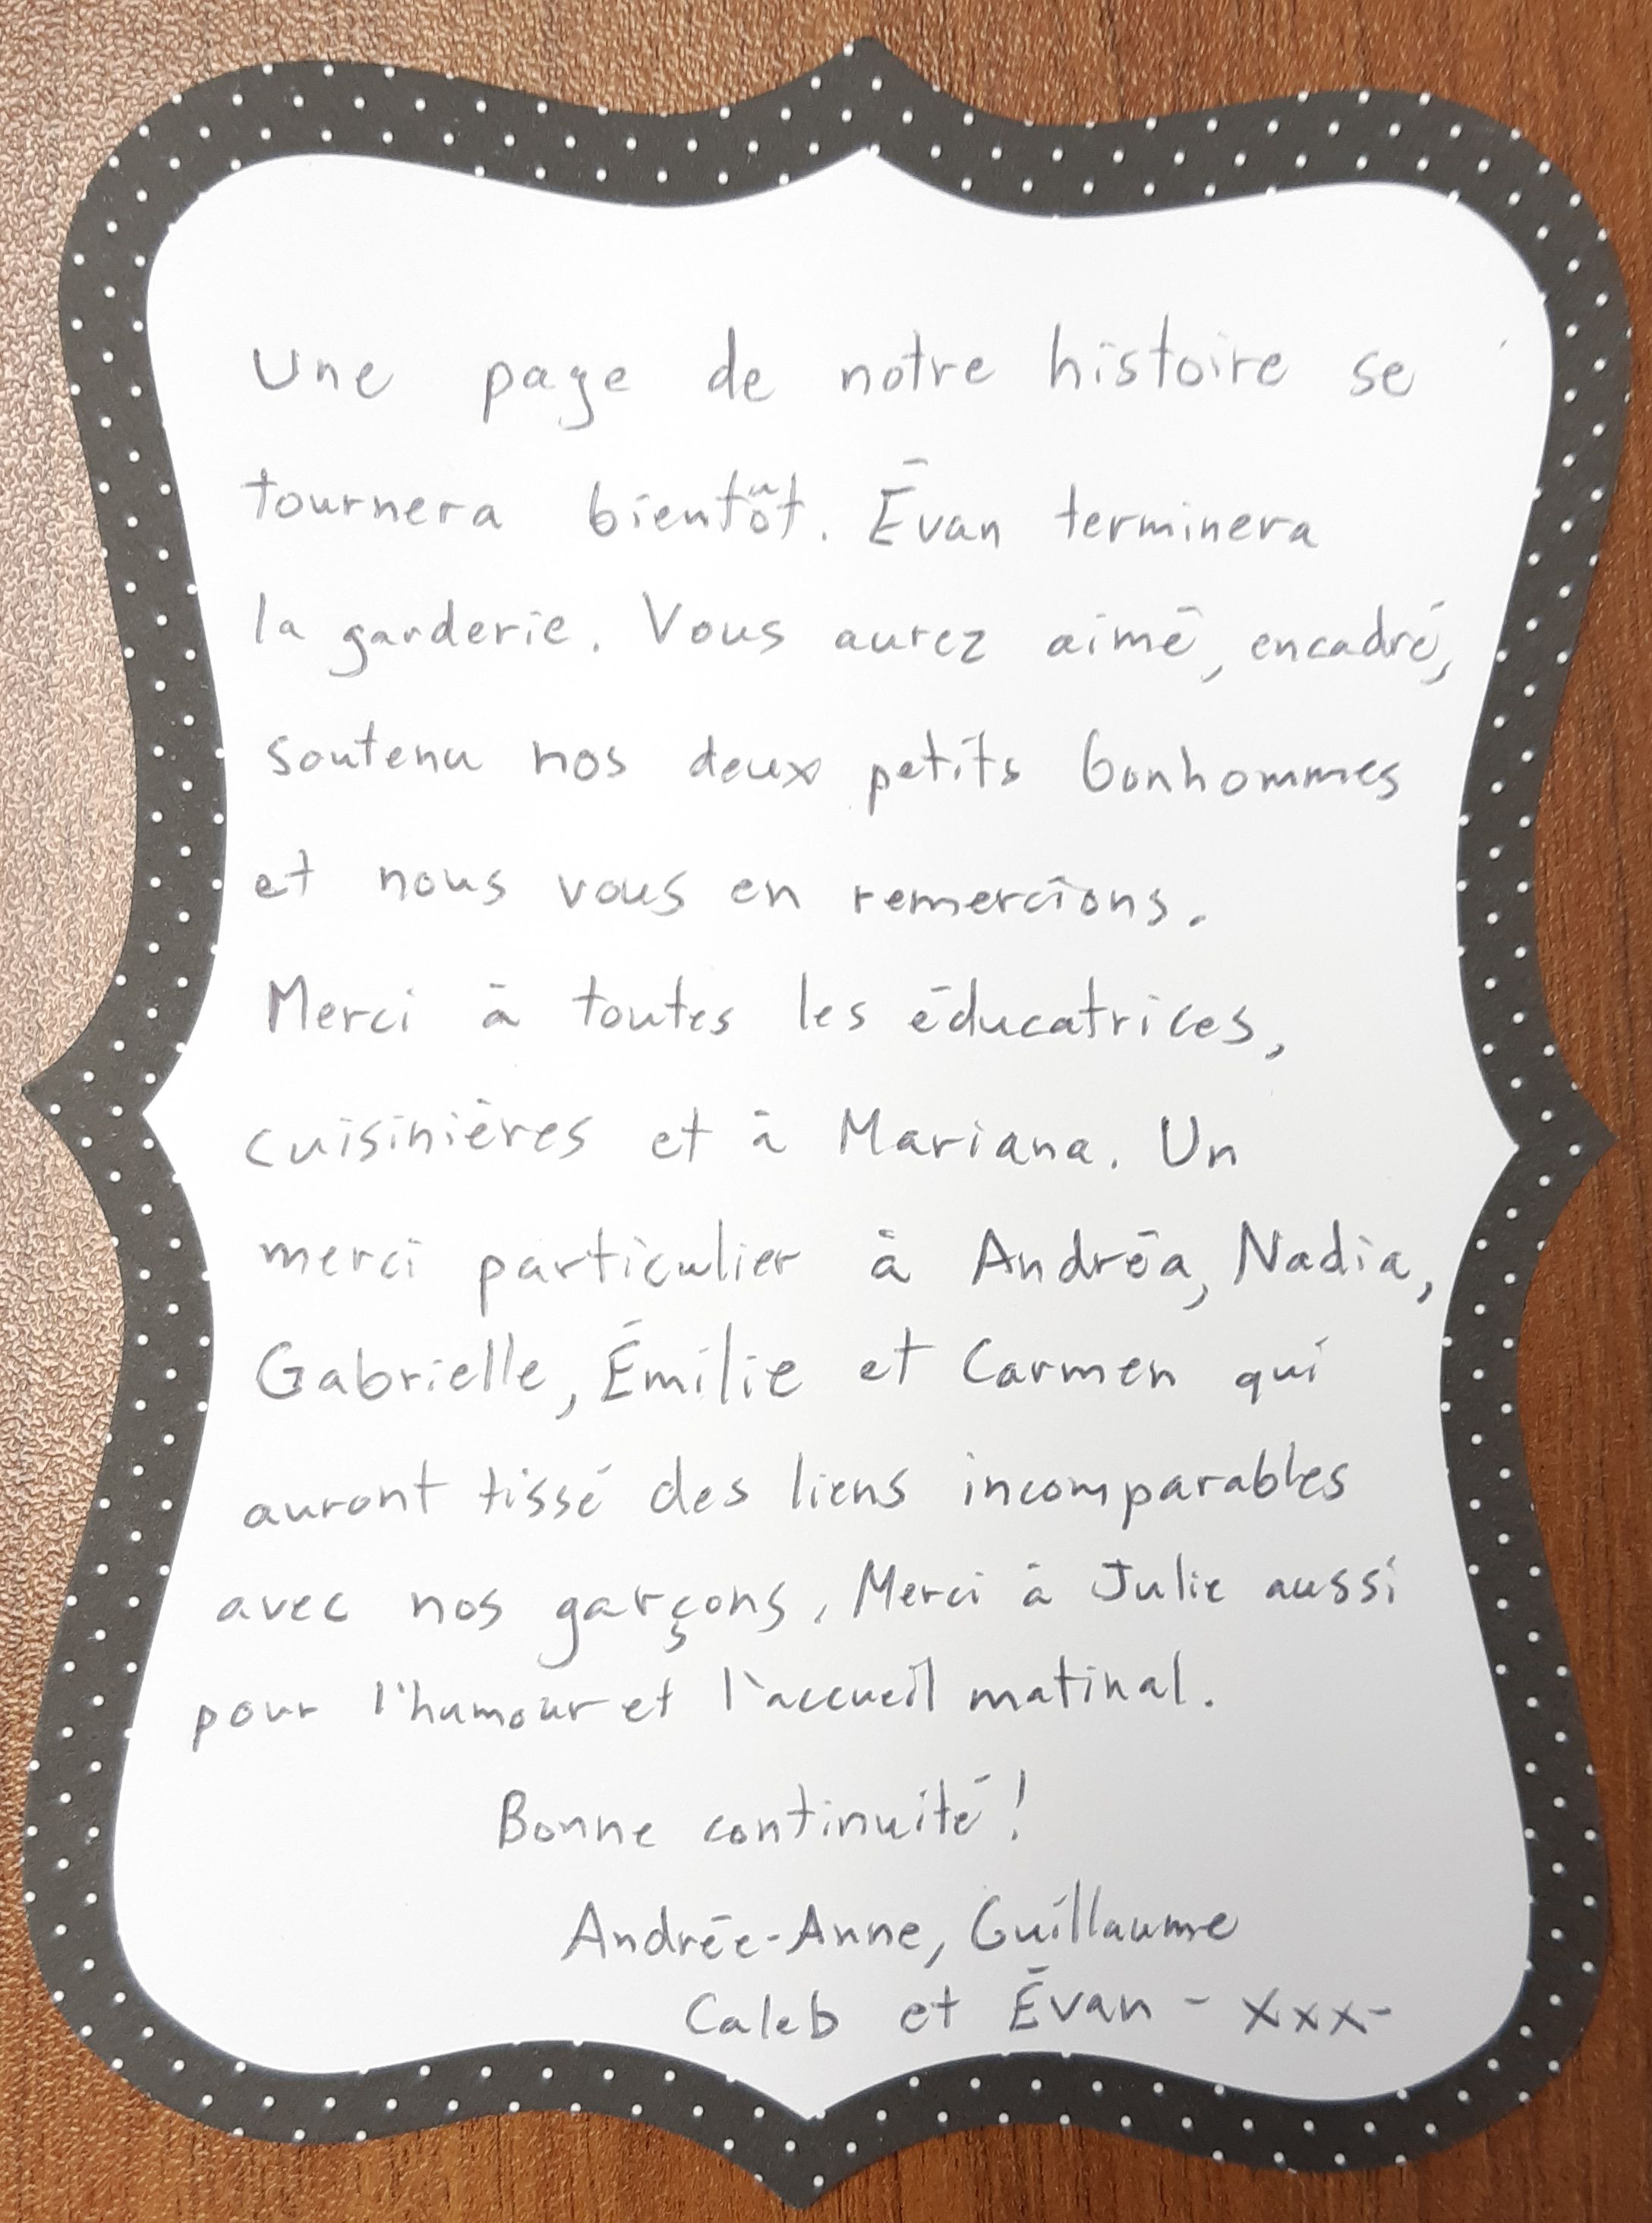 Une page de notre histoire se
tournera bientôt. Évan terminera
la garderie. Vous aurez aimé, encadré,
soutenu nos deux petits bonhommes
et nous vous en remercions.
Merci à toutes les éducatrices,
cuisinières et à Mariana. Un
merci particulier à Andréa, Nadia,
Gabrielle, Émilie et Carmen qui
auront tissé des liens incomparables
avec nos garçons. Merci à Julie aussi
pour l'humour et l'accueil matinal.
Bonne continuité !
Andrée-Anne, Guillaume
Caleb et Évan - xxx-